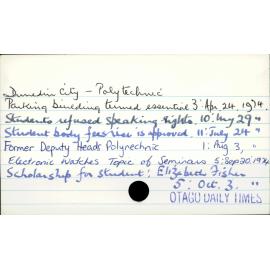 Dunedin City - Polytechnic
Parking building termed essential 3: Apr. 24. 1974.
Students refused speaking rights. 10: May 29 "
Student body fees rise is approved. 11: July 24 "
Former Deputy Heads Polytechnic 1: Aug 3, "
Electronic Watches Topic of Seminars 5: Sep 20. 1974
Scholarship for student: Elizabeth Fisher
5: Oct. 3. "
OTAGO DAILY TIMES